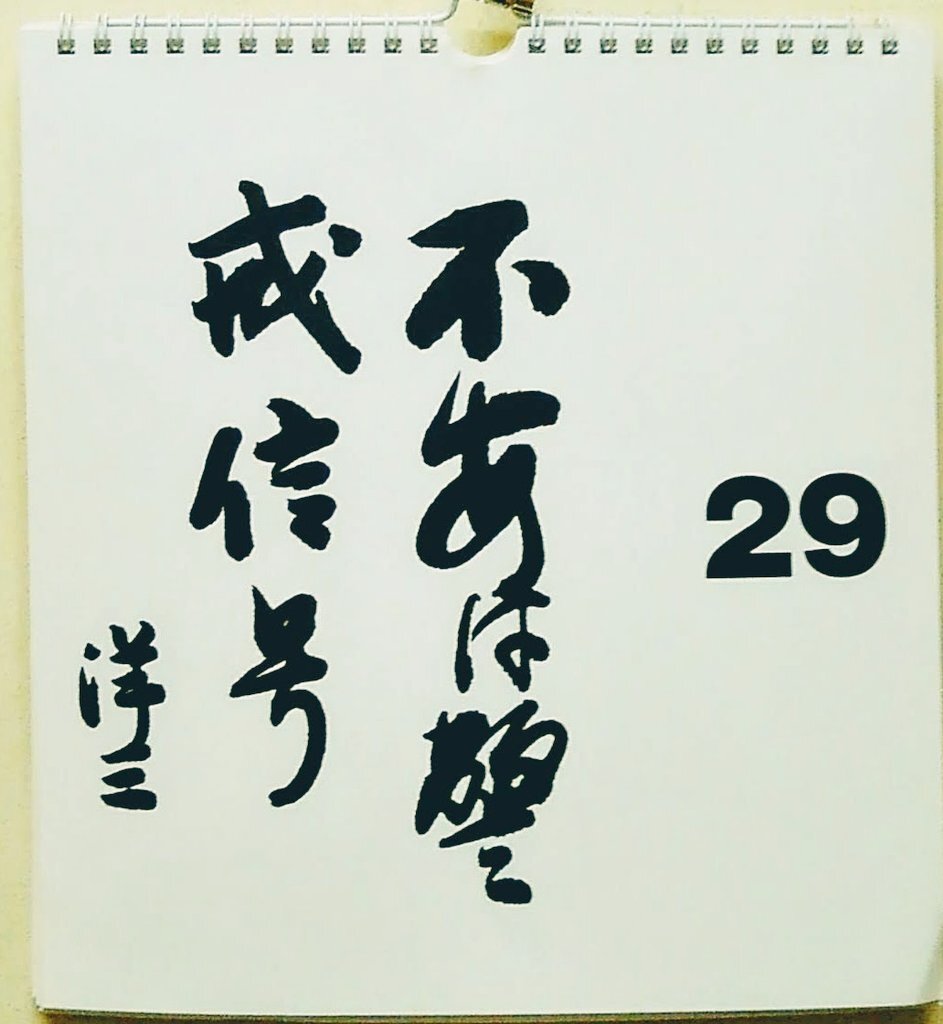 29
不安は警
戒信号
洋三